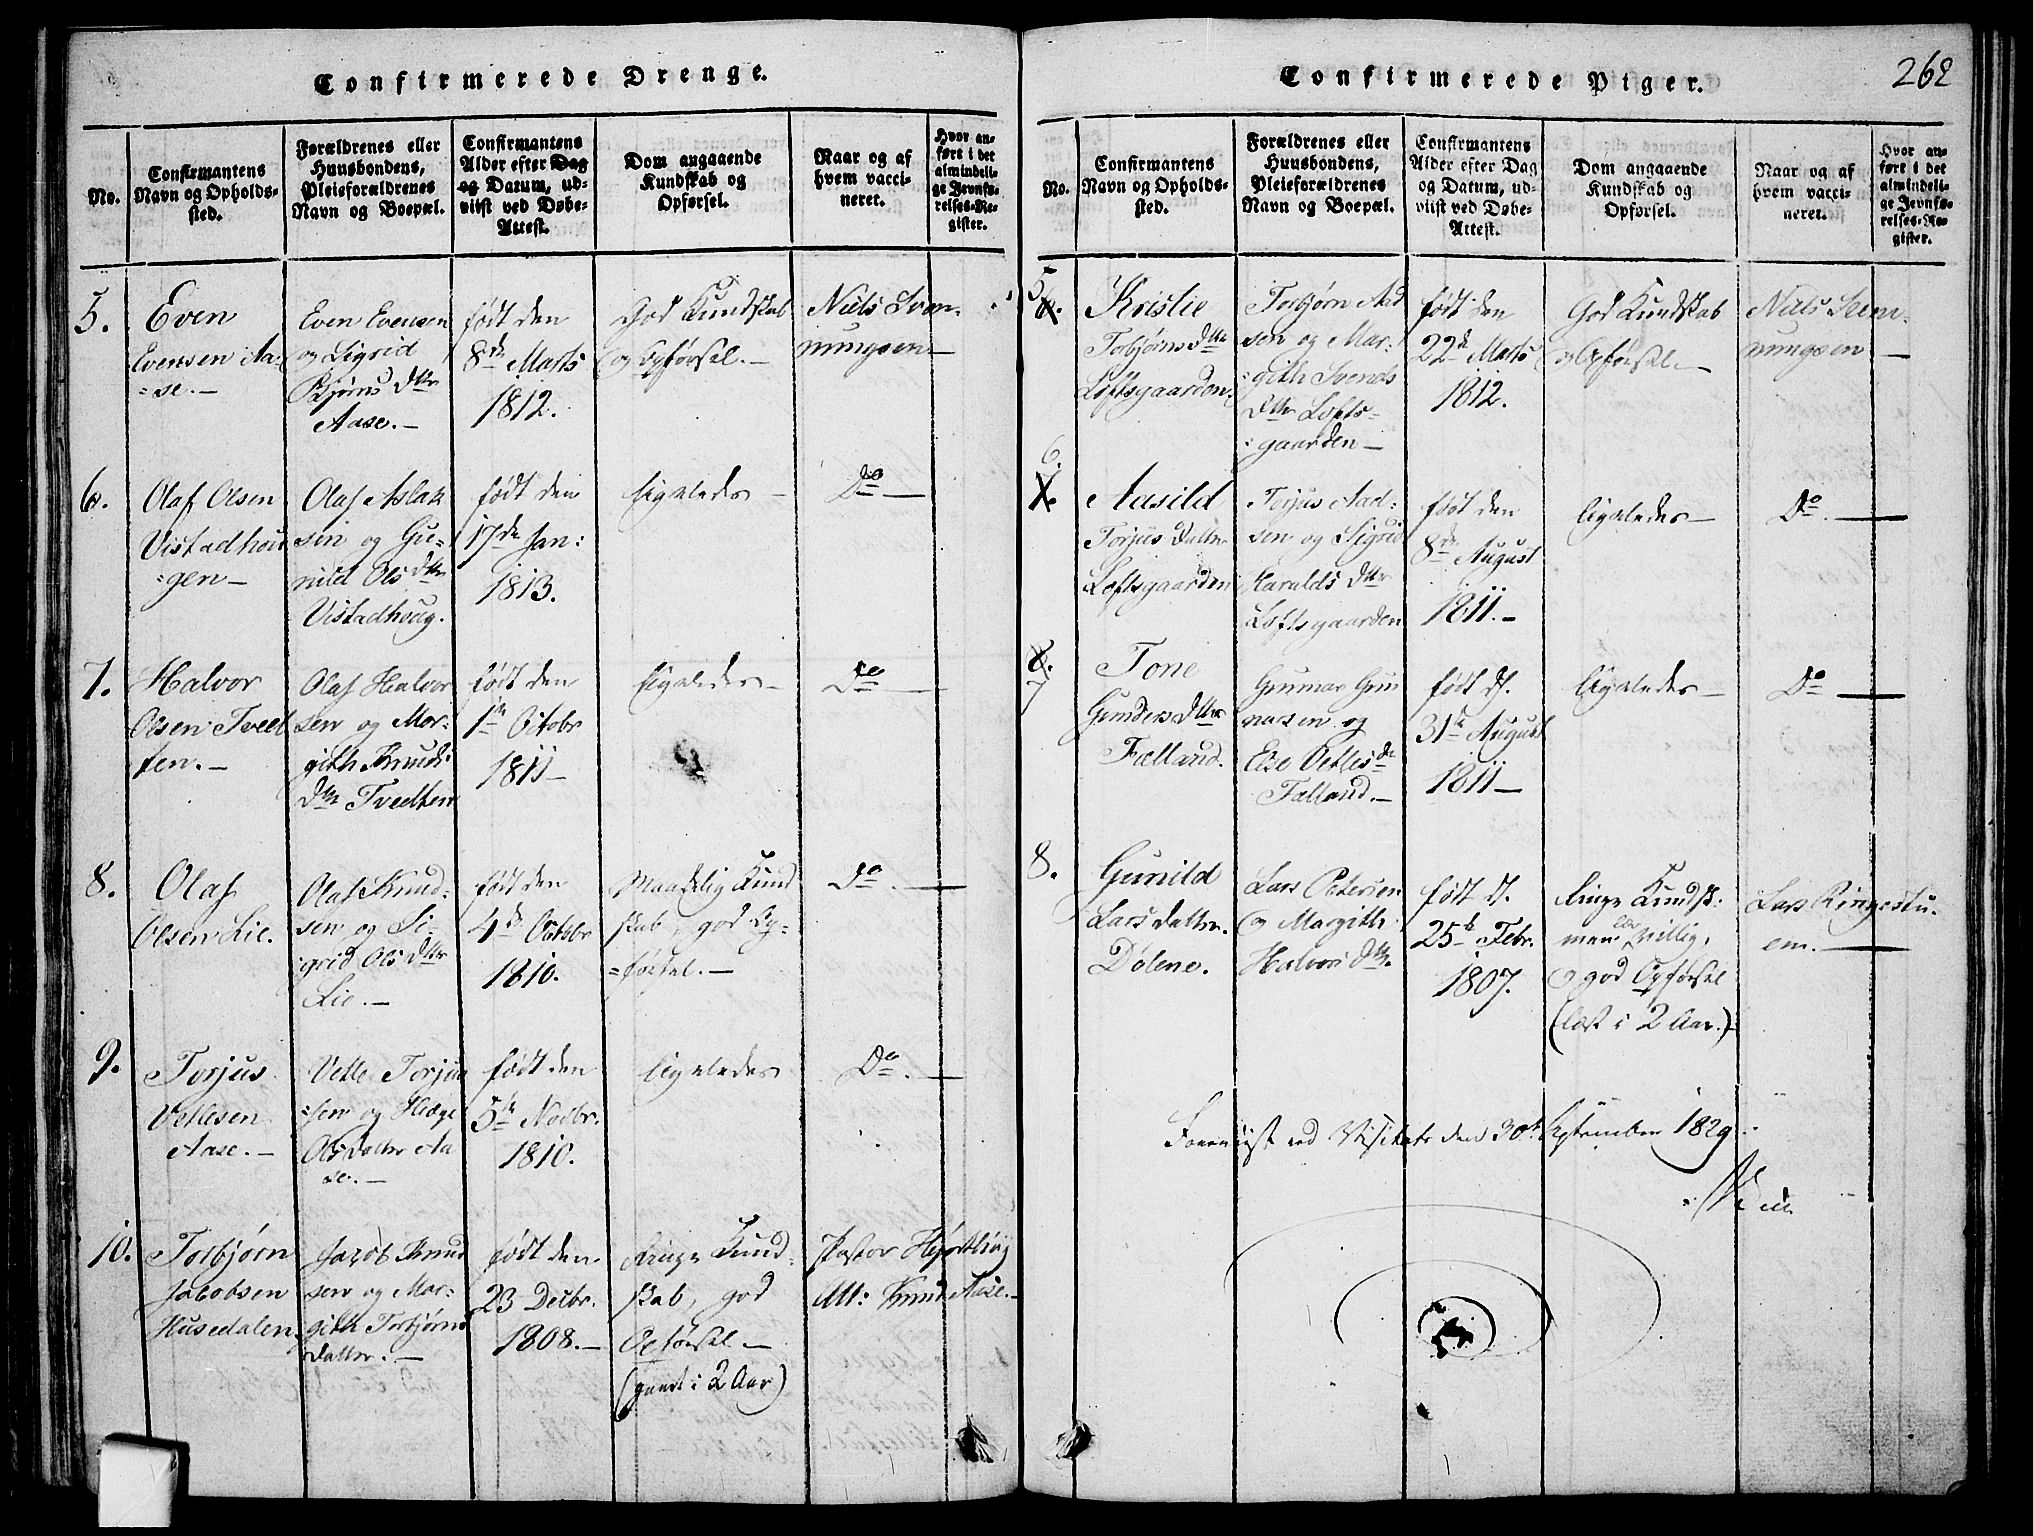 Confirmerede Drenge.
No.
Confirmantens
Navn og Opholds-
sted.
Forældrenes eller
Huusbondens,
Pleieforældrenes
Navn og Boepæl.
Confirmantens
Alder efter Dag
og Datum, ud-
viist ved Døbe-
Attest.
Dom angaaende
Kundskab og
Opførsel.
Naar og af
hvem vacci-
neret.
Hvor an-
ført i det
almindeli-
ge Jevnfø-
relses-Re-
gister.
5.
Even
Evensen Aa-
=se.-
Even Evensen
og Sigrid
Bjørns Dttr
Aase.-
født den
8de Marts
1812.
God Kundskab
og Opførsel.-
Niels Sven-
nungsen
6.
Olaf Olsen
Vistadhou
=gen-
Olaf Aslak
sen og Gu-
nild Ols Dttr
Vistadhoug.
født den
17de Jan:
1813.
ligeledes -
Do -
7.
Halvor
Olsen Tveet
ten.-
Olaf Halvor
sen og Mar-
gith Knuds
Dttr Tvedten
født den
1ste Octobr
1811-
ligeledes -
Do
8.
Olaf
Olsen Lie.
Olaf Knud-
sen og Si-
grid Ols Dttr
Lie.-
født den
4de Octobr
1810.
Maadelig Kund
skab, god Op-
=førsel.-
Do.
9.
Torjus
Vetlesen
Aase.-
Vetle Torjus
=sen og Hæge
Ols Datter Aa
se.-
født den
5te Novbr.
1810.
ligeledes
Do.
10.
Torbjørn
Jacobsen
Husedalen
Jacob Knud
sen og Mar-
gith Torbjørns
Datter.-
født den
23 Decbr.
1808.-
Ringe Kund-
skab, god
Opførsel-
( i 2 Aar)
Pastor
Att: Knud Aase.-
Confirmerede Piger.
262
No.
Confirmantens
Navn og Opholds-
sted.
Forældrenes eller
Huusbondens,
Pleieforældrenes
Navn og Boepæl.
Confirmantens
Alder efter Dag
og Datum, ud-
viist ved Døbe-
Attest.
Dom angaaende
Kundskab og
Opførsel.
Naar og af
hvem vacci-
neret.
Hvor an-
ført i det
almindeli-
ge Jevnfø-
relses-Re-
gister.
5
Kristie
Torbjørns Dttr
Loftsgaarden.
Torbjørn Aad
sen og Mar-
gith Svends
Dttr Lofts-
=gaarden-
født den
22de Marts
1812.
God Kundskab
og Opførsel.-
Niels Sven-
nungsen
6.
Aasild
Torjus Datter
Loftsgaarden
Torjus Aad-
sen og Sigrid
Haralds Dttr
Loftsgaarden
født den
8de August
1811.-
ligeledes-
Do.
7
Tone
Gunders Dttr
Fælland.
Gunnar Gun
narsen og
Else Vetles Dr
Fælland.-
født d.
31te August
1811-
ligeledes-
Do
8.
Gunild
Lars Datter.
Dølene.
Lars Petersen
og Margith
Halvors Dttr.
født d.
25te Febr.
1807.
Ringe Kundsk:
men villig,
og god Opførsel
(læst i 2 Aar.)
Lars Ringestu-
en.
Foreviist ved Visitats den 30te September 1829.